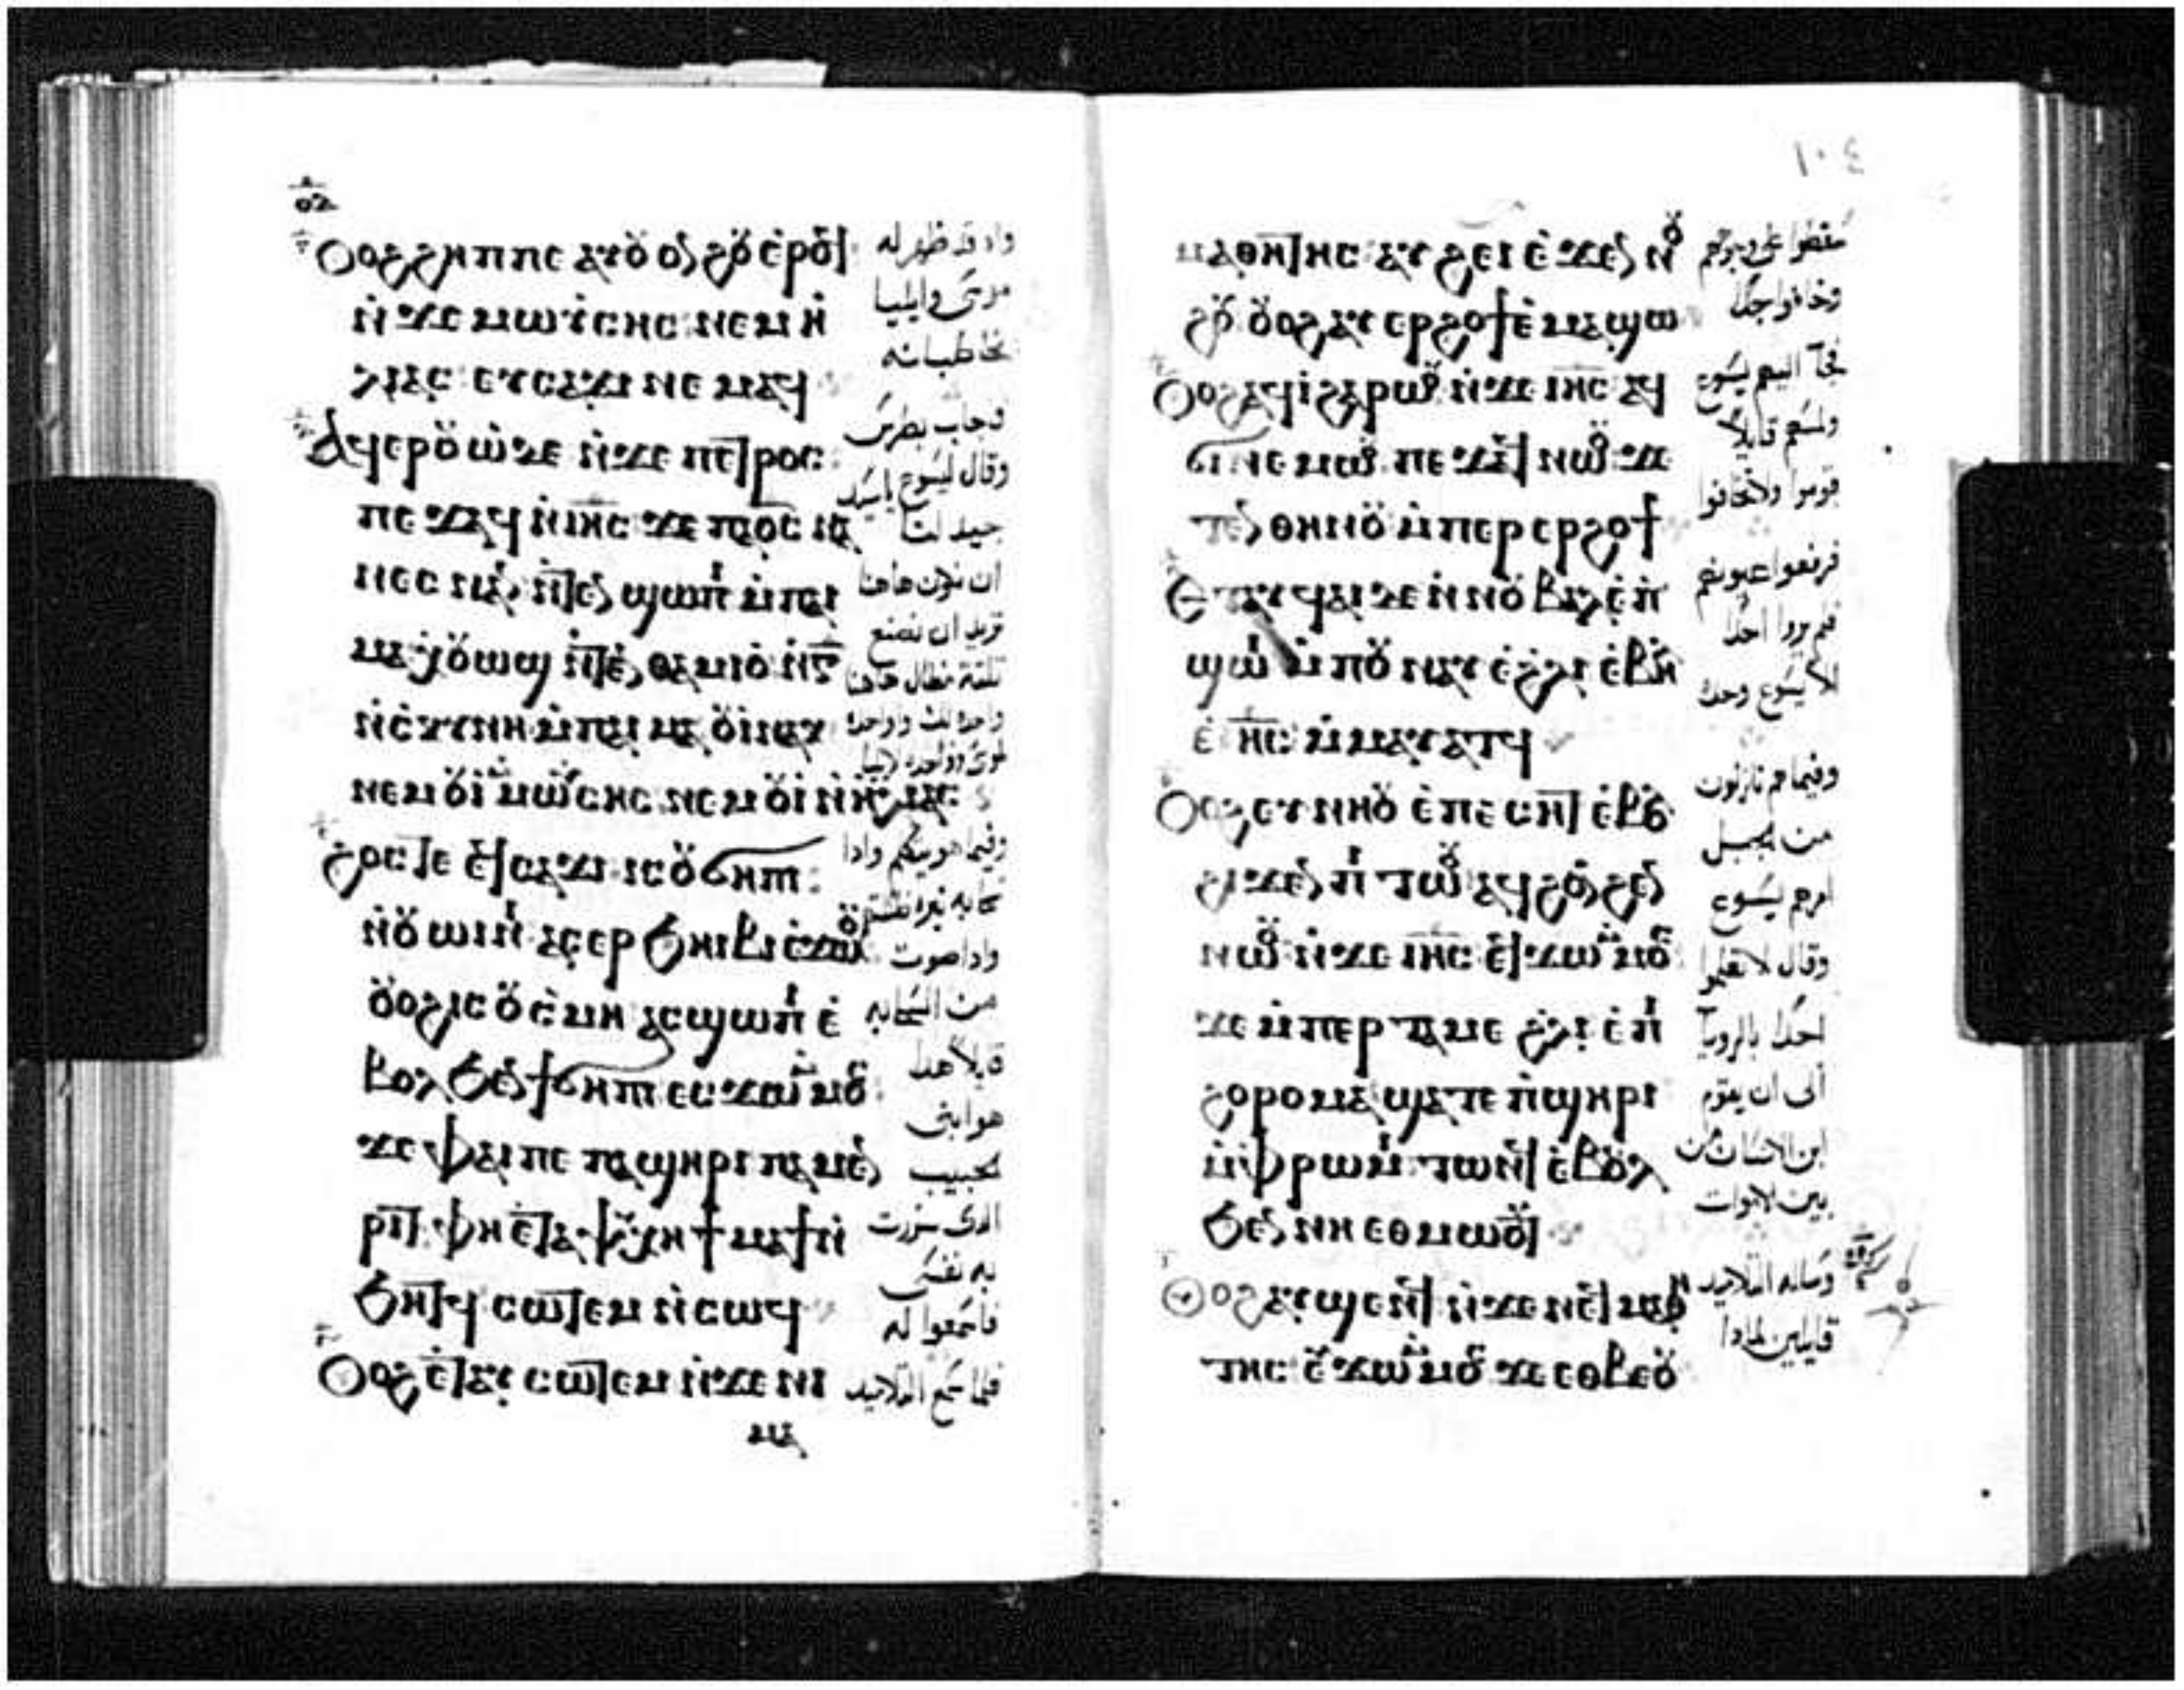 Ⲟⲟϩ ϩⲏⲡⲡⲉ ⲁⲩⲟ̈ⲟⲛϩⲟ̈ ⲉ̀ⲣⲟϥ
ⲛ̀ϫⲉ ⲙⲱⲩ̈ⲥⲏⲥ ⲛⲉⲙ ⲏ̀
ⲗⲓⲁⲥ ⲉⲩⲥⲁϫⲓ ⲛⲉⲙⲁϥ
Ⲁϥⲉⲣⲟ̈ⲱ̀ ϫⲉ ⲛ̀ϫⲉ ⲡⲉⲧⲣⲟⲥ
ⲡⲉϫⲁϥ ⲛ̀ⲓⲏ̅ⲥ ϫⲉ ⲡⲁϭ̅ⲥ ⲛⲁ
ⲛⲉⲥ ⲛⲁⲛ ⲛ̀ⲧⲉⲛϣⲱⲡⲓ ⲙ̀ⲡⲁⲓ
ⲙⲁ ⲭⲟ̈ⲱϣ ⲛ̀ⲧⲉⲛⲑⲁⲙⲓⲟ̀ ⲛ̀ⲅ̅
ⲛ̀ⲥ̀ⲕⲩⲛⲏ ⲙ̀ⲡⲁⲓⲙⲁ ⲟ̈ⲓ̀ ⲛⲁⲕ
ⲛⲉⲙ ⲟ̈ⲓ̀ ⲙ̀ⲙⲱⲩ̈ⲥⲏⲥ ⲛⲉⲙ ⲟ̈ⲓ̀ ⲛ̀ⲏ̀ⲗⲓⲁⲥ
ϩⲟⲥⲧⲉ ⲉϥⲥⲁϫⲓ ⲓⲥ ⲟ̈ϭⲏⲡⲓ
ⲛ̀ⲟ̈ⲱⲓⲛⲓ ⲁⲥⲉⲣϧⲏⲓⲃⲓ ⲉ̀ϫⲱⲟ̈
ⲟ̈ⲟϩ ⲓⲥ ⲟ̈ⲥ̀ⲙⲏ ⲁⲥϣⲱⲡⲓ ⲉ̀
ⲃⲟⲗ ϧⲉⲛ ϯϭⲏⲡⲓ ⲉⲥϫⲱ ⲙ̀ⲙⲟⲥ
ϫⲉ ⲫⲁⲓ ⲡⲉ ⲡⲁϣⲏⲣⲓ ⲡⲁⲙⲉⲛ
ⲣⲓⲧ ⲫⲏ ⲉ̀ⲧⲁ ⲧⲁⲯⲩⲭⲏ ϯⲙⲁϯ ⲛ̀
ϧⲏⲧϥ ⲥⲱⲧⲉⲙ ⲛ̀ⲥⲱϥ
Ⲟⲟϩ ⲉ̀ⲧⲁⲩⲥⲱⲧⲉⲙ ⲛ̀ϫⲉ ⲛⲓ
ⲙⲁ
واذ قد ظهر له
موسى وايليا
يخاطبانه
فاجاب بطرس
وقال ليسوع ياسيد
جيد لنا
ان نكون هاهنا
تريد ان نصنع
ثلثة مظال هاهنا
واحدة لك وواحدة
لموسى وواحدة لايليا
وفيما هو يتكلم واذا
سحابه نيره ظللتهم
واذا صوت
من السحابه
قايلا هذا
هو ابني
الحبيب
الذى سررت
به نفسى
فاسمعوا له
فلما سمع التلاميد
١٠٤
ⲙⲁⲑⲏⲧⲏⲥ ⲁⲩϩⲉⲓ ⲉ̀ϫⲉⲛ ⲛⲟ̈
ϩⲟ̈ ⲟ̈ⲟϩ ⲁⲩⲉⲣϩⲟϯ ⲉ̀ⲙⲁϣⲱ
Ⲟⲟϩ ⲁϥⲓ̀ ϩⲁⲣⲱⲟ̈ ⲛ̀ϫⲉ ⲓⲏ̅ⲥ ⲁϥ
ϭⲓ ⲛⲉⲙⲱⲟ̈ ⲡⲉϫⲁϥ ⲛⲱⲟ̈ ϫⲉ
ⲧⲉⲛ ⲑⲏⲛⲟ̈ ⲙ̀ⲡⲉⲣⲉⲣϩⲟϯ
Ⲉⲧⲁⲩϥⲁⲓ ϫⲉ ⲛ̀ⲛⲟ̈ⲃⲁⲗ ⲉ̀ⲡ̀
ϣⲱⲓ ⲙ̀ⲡⲟ̈ⲛⲁⲩ ⲉ̀ϩ̀ⲗⲓ ⲉ̀ⲃⲏⲗ
ⲉ̀ⲓⲏ̅ⲥ ⲙ̀ⲙⲁⲩⲁⲧϥ
Ⲟⲟϩ ⲉⲩⲛⲏⲟ̈ ⲉ̀ⲡⲉⲥⲏⲧ ⲉ̀ⲃⲟⲗ
ϩⲓϫⲉⲛ ⲡⲓⲧⲱⲟ̈ ⲁϥϩⲟⲛϩⲉⲛ
ⲛⲱⲟ̈ ⲛ̀ϫⲉ ⲓⲏ̅ⲥ ⲉϥϫⲱ ⲙ̀ⲙⲟⲥ
ϫⲉ ⲙ̀ⲡⲉⲣⲧⲁⲙⲉ ϩ̀ⲗⲓ ⲉ̀ⲡⲓ
ϩⲟⲣⲟⲙⲁ ϣⲁⲧⲉ ⲡ̀ϣⲏⲣⲓ
ⲙ̀ⲫ̀ⲣⲱⲙⲓ ⲧⲱⲛϥ ⲉ̀ⲃⲟⲗ
ϧⲉⲛ ⲛⲏ ⲉⲑⲙⲱⲟ̈ⲧ
Ⲟⲟϩ ⲁⲩϣⲉⲛϥ ⲛ̀ϫⲉ ⲛⲉϥⲙⲁⲑⲏ
ⲧⲏⲥ ⲉⲩϫⲱ ⲙ̀ⲙⲟⲥ ϫⲉ ⲉⲑⲃⲉⲟ̈
سقطوا على وجوههم
وخافوا جدا
فجآ اليهم يسوع
ولمسهم قايلا
قوموا ولا تخافوا
فرفعوا عيونهم
فلم يروا احدا
الا يسوع وحده
وفيما هم نازلون
من الجبل
امرهم يسوع
وقال لا تعلموا
احدا بالرويآ
الى ان يقوم
ابن الانسان من
بين الاموات
وساله التلاميد
قايلين لمادا